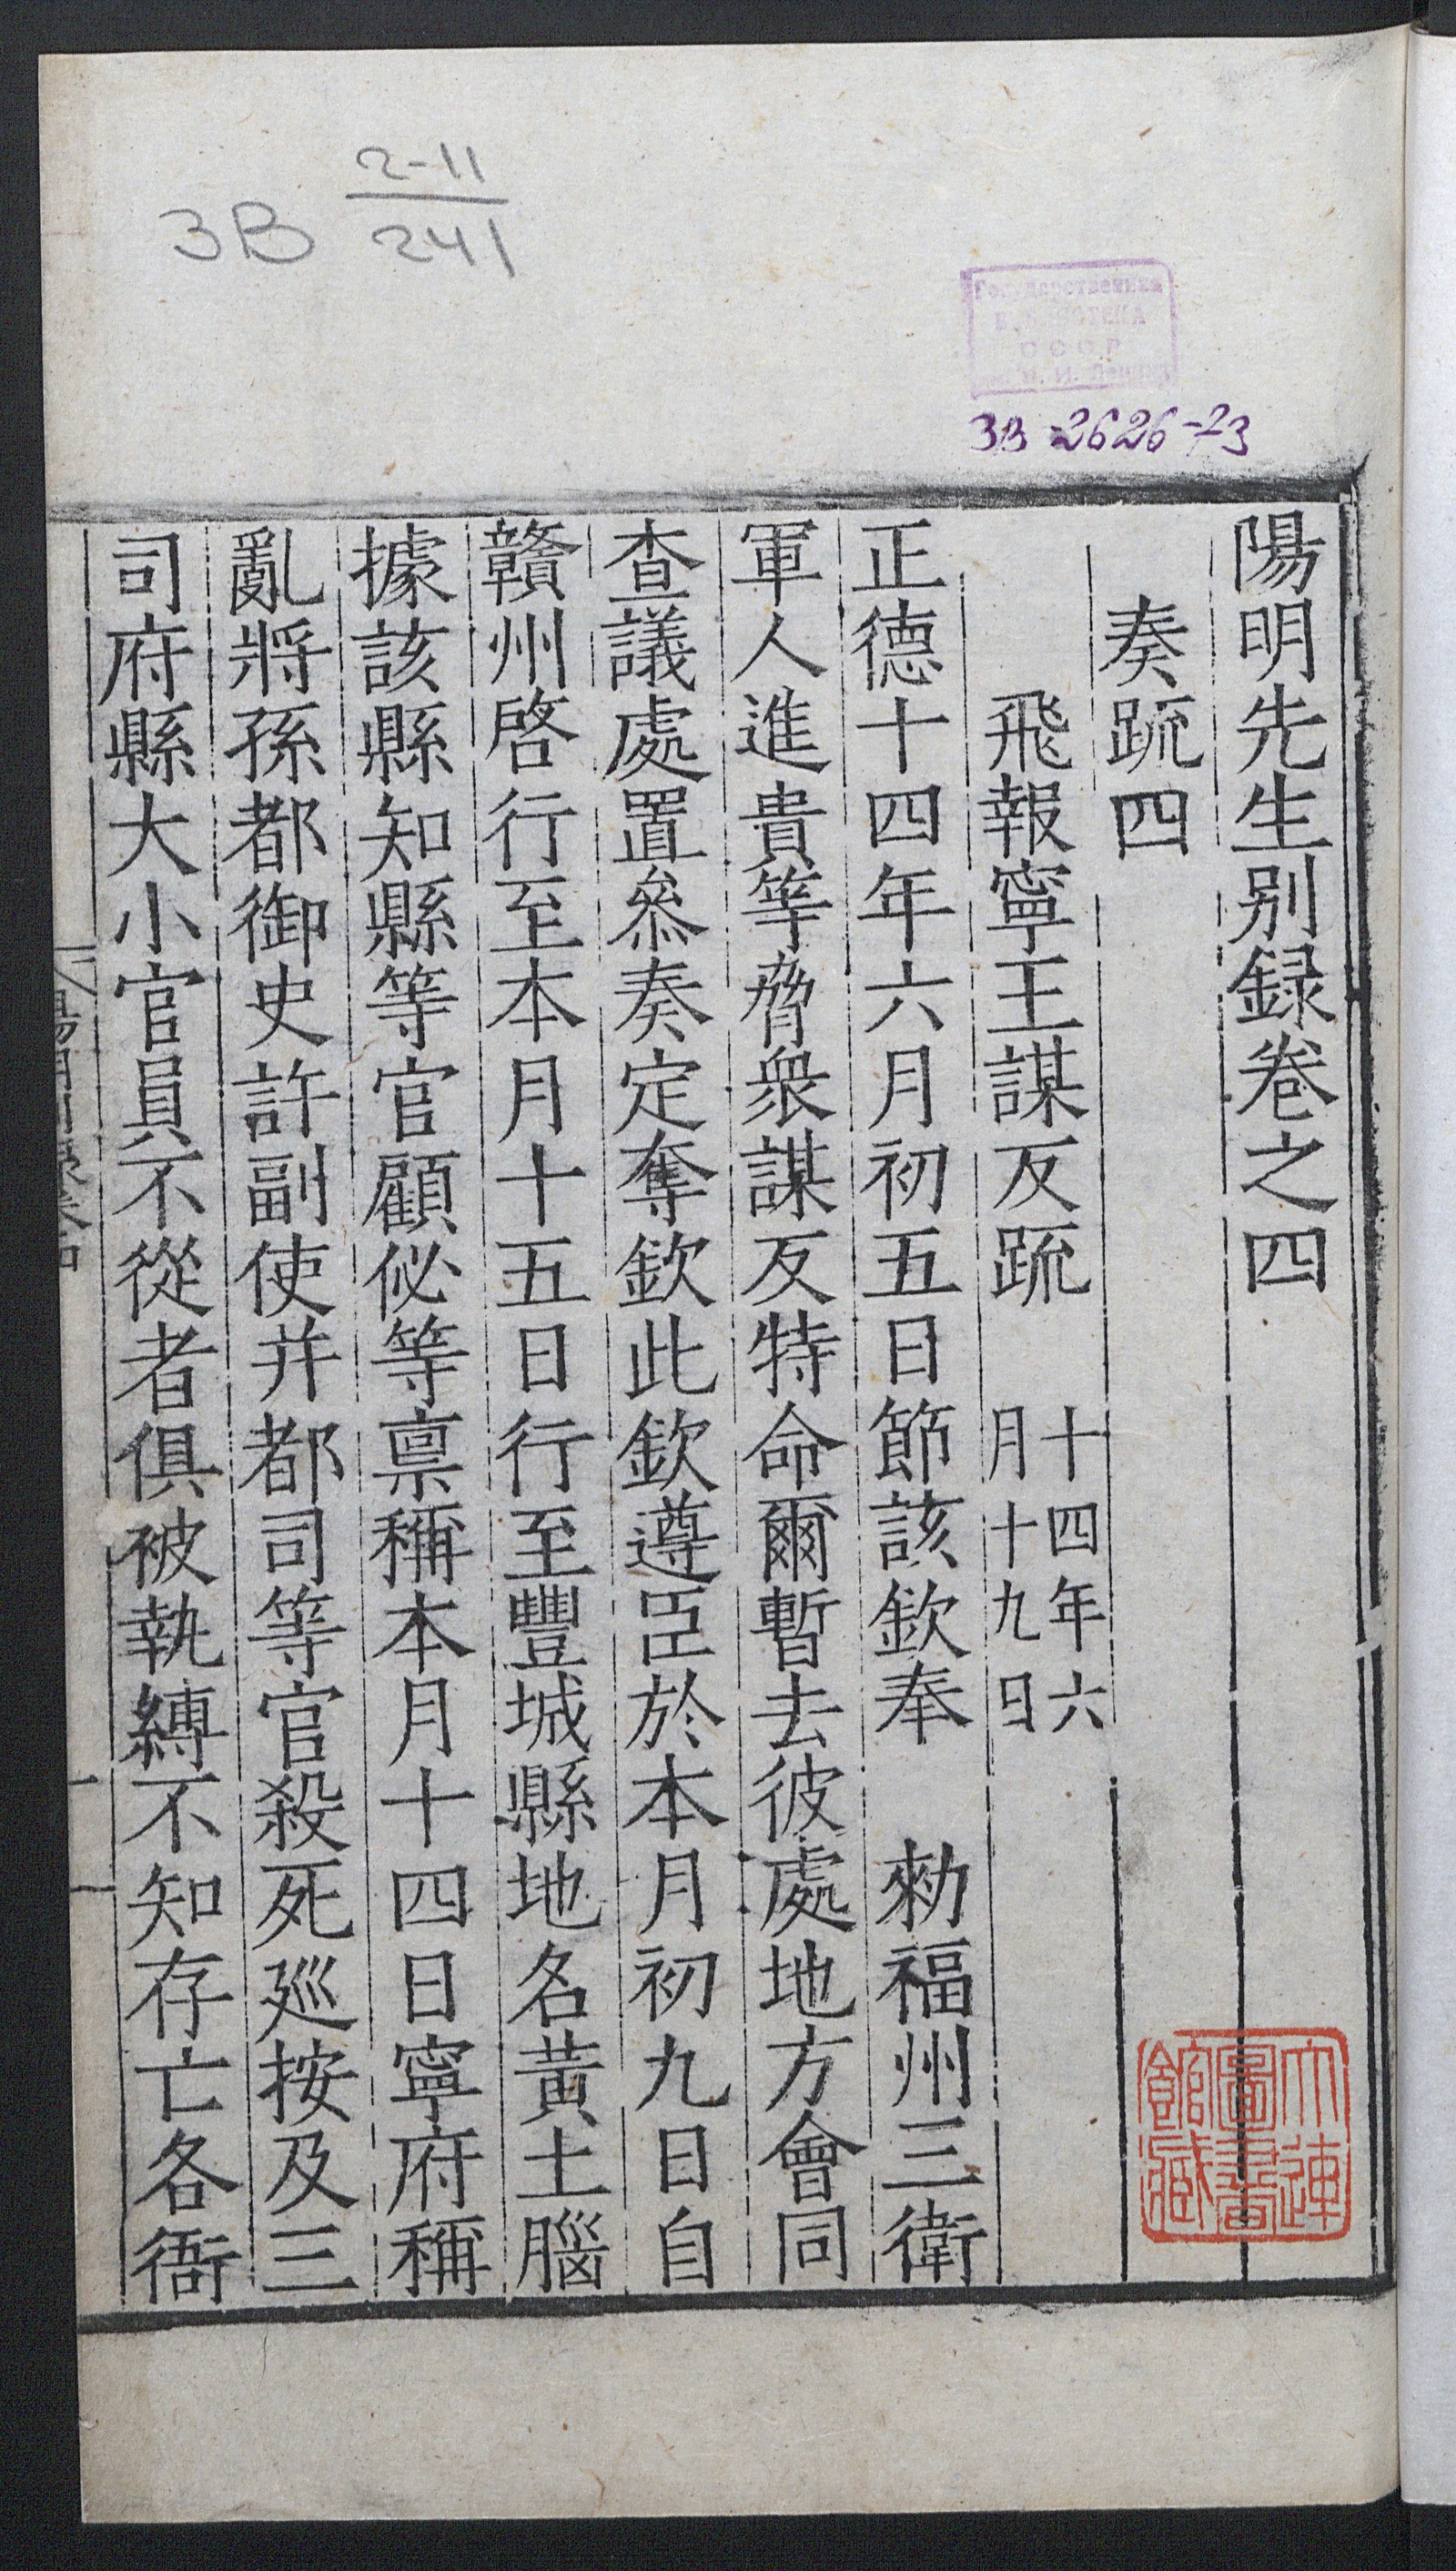 3В 2-11
241
Государственная
БИБЛИОТЕКА
СССР
В. И. Ленина
3В-2626-73
陽明先生别録卷之四
奏䟽四
飛報寧王謀反䟽 十四年六月十九日
正德十四年六月初五日節該欽奉 勑福州三衛
軍人進貴等脅衆謀反特命爾暫去彼處地方會同
查議處置叅奏定奪欽此欽遵臣於本月初九日自
贛州啓行至本月十五日行至豐城縣地名黃土腦
據該縣知縣等官顧佖等禀稱本月十四日寧府稱
亂將孫都御史許副使并都司等官殺死廵按及三
司府縣大小官員不從者俱被執縛不知存亡各衙
大連圖書館藏